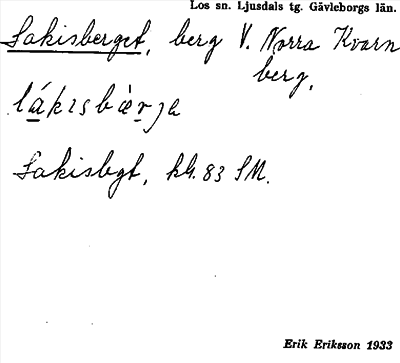 Los sn. Ljusdals tg. Gävleborgs län.
Lakisberget, berg V. Norra Kvarn
berg.
lákısbæ̀rjə
Lakisbgt, kbl. 83 SM.
Erik Eriksson 1933